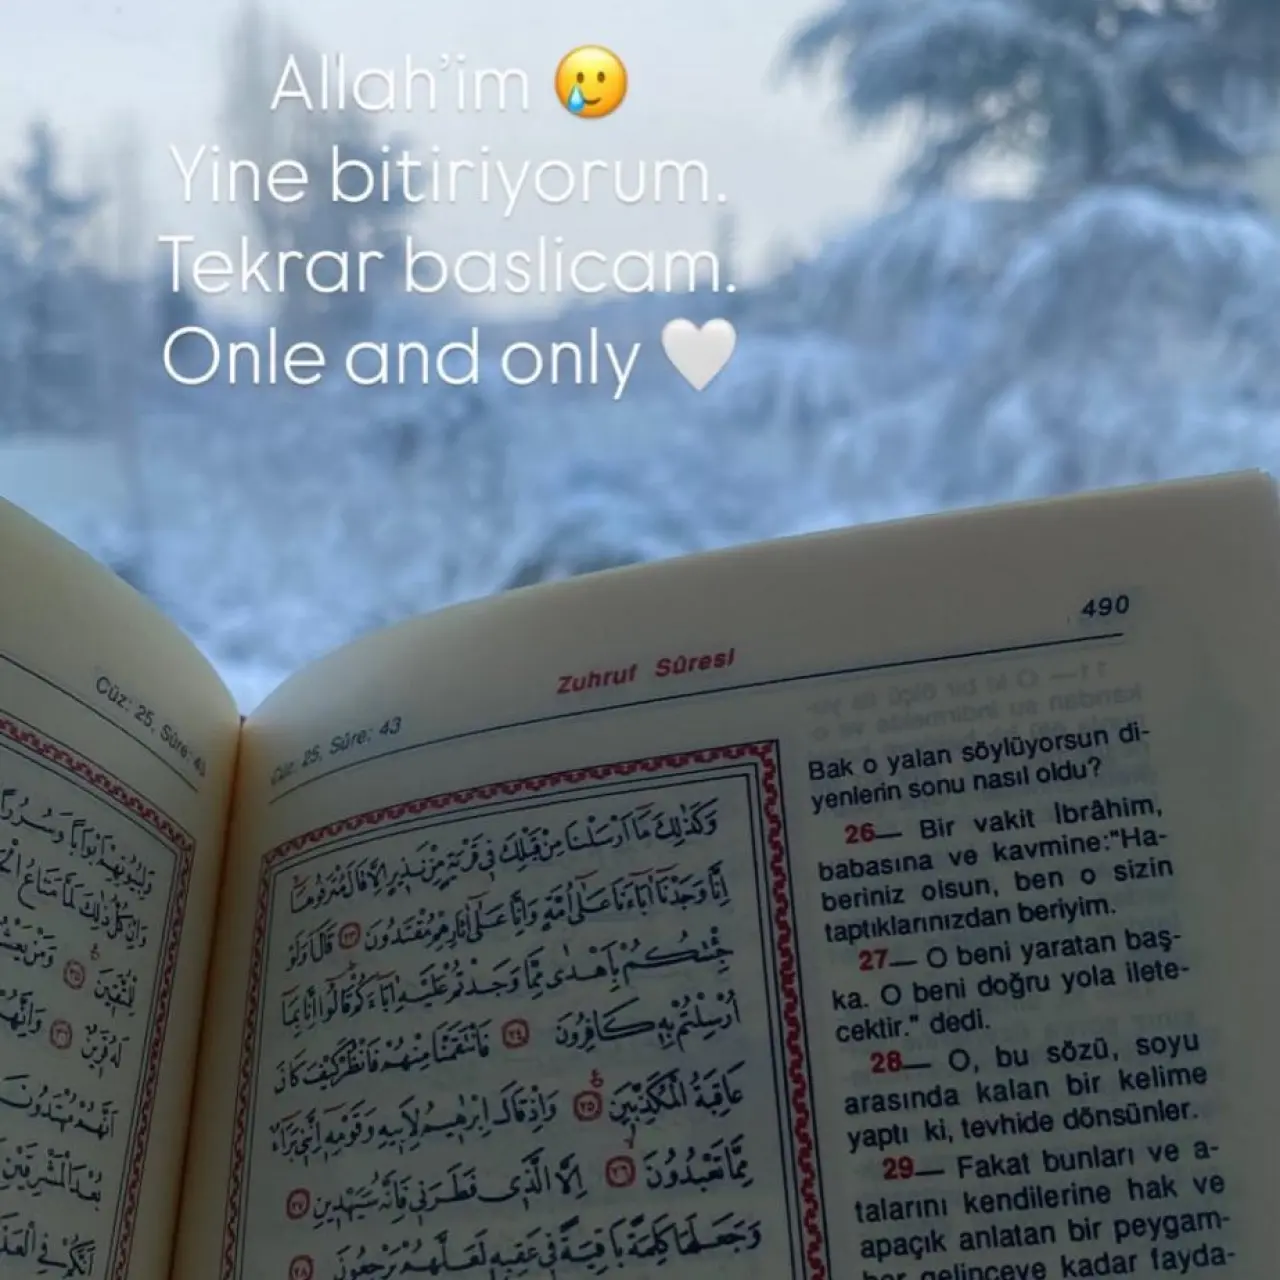 Allah'im 🥲
Yine bitiriyorum.
Tekrar baslicam.
Onle and only 🤍
490
Zuhruf Sûresi
Cüz: 25, Sûre: 43
Cüz: 25, Sûre: 43
وَكَذٰلِكَ مَٓا اَرْسَلْنَا مِنْ قَبْلِكَ فٖى قَرْيَةٍ مِنْ نَذٖيرٍ اِلَّا قَالَ مُتْرَفُوهَٓا
اِنَّا وَجَدْنَٓا اٰبَٓاءَنَا عَلٰٓى اُمَّةٍ وَاِنَّا عَلٰٓى اٰثَارِهِمْ مُقْتَدُونَ ﴿٢٣﴾ قَالَ اَوَلَوْ
جِئْتُكُمْ بِاَهْدٰى مِمَّا وَجَدْتُمْ عَلَيْهِ اٰبَٓاءَكُمْ قَالُٓوا اِنَّا بِمَٓا
اُرْسِلْتُمْ بِهٖ كَافِرُونَ ﴿٢٤﴾ فَانْتَقَمْنَا مِنْهُمْ فَانْظُرْ كَيْفَ كَانَ
عَاقِبَةُ الْمُكَذِّبٖينَ ﴿٢٥﴾ وَاِذْ قَالَ اِبْرٰهٖيمُ لِاَبٖيهِ وَقَوْمِهٖٓ اِنَّنٖى بَرَٓاءٌ
مِمَّا تَعْبُدُونَ ﴿٢٦﴾ اِلَّا الَّذٖى فَطَرَنٖى فَاِنَّهُ سَيَهْدٖينِ ﴿٢٧﴾
وَجَعَلَهَا كَلِمَةً بَاقِيَةً فٖى عَقِبِهٖ لَعَلَّهُمْ يَرْجِعُونَ ﴿٢٨﴾
Bak o yalan söylüyorsun di-
yenlerin sonu nasıl oldu?
26— Bir vakit Ibrâhim,
babasına ve kavmine:"Ha-
beriniz olsun, ben o sizin
taptıklarınızdan beriyim.
27— O beni yaratan baş-
ka. O beni doğru yola ilete-
cektir." dedi.
28— O, bu sözü, soyu
arasında kalan bir kelime
yaptı ki, tevhide dönsünler.
29— Fakat bunları ve a-
talarını kendilerine hak ve
apaçık anlatan bir peygam-
ber gelinceye kadar fayda-